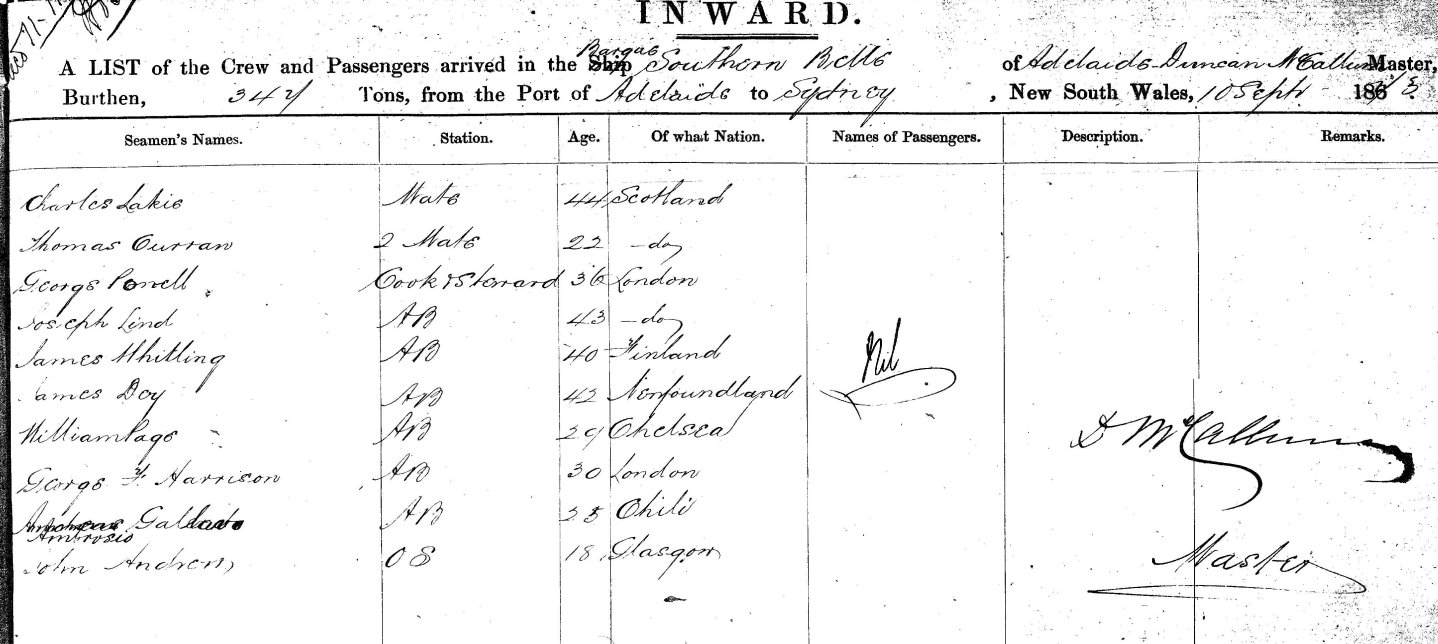 INWARD.
Barque
A LIST of the Crew and Passengers arrived in the Ship Southern Belle of Adelaide Duncan McCallum Master,
Burthen, 347 Tons, from the Port of Adelaide to Sydney, New South Wales, 10 Sept 187
Seamen's Names. Station. Age. Of what Nation. Names of Passengers. Description. Remarks.
Charles Lakie Mate 44 Scotland
Thomas Curran 2 Mate 22 -do
George Powell Cook & Steward 36 London
Joseph Lind AB 43 -do
James Whitling AB 40 Finland
Nil
James Doy AB 42 Newfoundland
William Page AB 29 Chelsea
D McCallum
George F. Harrison AB 30 London
Gallado AB 25 Chili
Ambrosio
John Andrews OS 18 Glasgow
Master